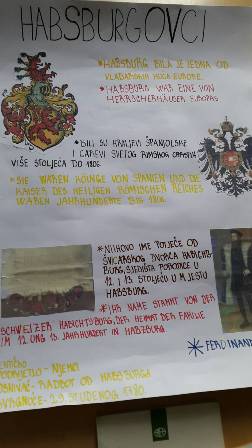 HABSBURGOVCI
*HABSBURG BILA JE JEDNA OD
VLADARSKIH KUĆA EUROPE.
*HABSBURG WAR EINE VON
HERRSCHERHÄUSER EUROPAS
*BILI SU KRALJEVI ŠPANJOLSKE
I CAREVI SVETOG RIMSKOG CARSTVA
VIŠE STOLJEĆA DO 1806
*SIE WAREN KÖINGE VON SPANIEN UND DIE
KAISER DES HEILIGEN RÖMISCHEN REICHES
WAREN JAHRHUNDERTE BIS 1806
*NJIHOVO IME POTJEČE OD
ŠVICARSKOG DVORCA HABICHT
BURG, SJEDIŠTA PORODICE U
12. I 13. STOLJEĆU U MJESTU
HABSBURG.
*IHR NAME STAMMT VON DER
SCHWEIZER HABICHTSBURG, DER HEIMAT DER FAMILIE
IM 12 UND 13. JAHRHUNDERT IN HABZBURG
PODRIJETLO - NJEMAČ
OSNIVAČ: RADBOT OD HABSBURGA
29. STUDENOG 1780
*FERDINAND